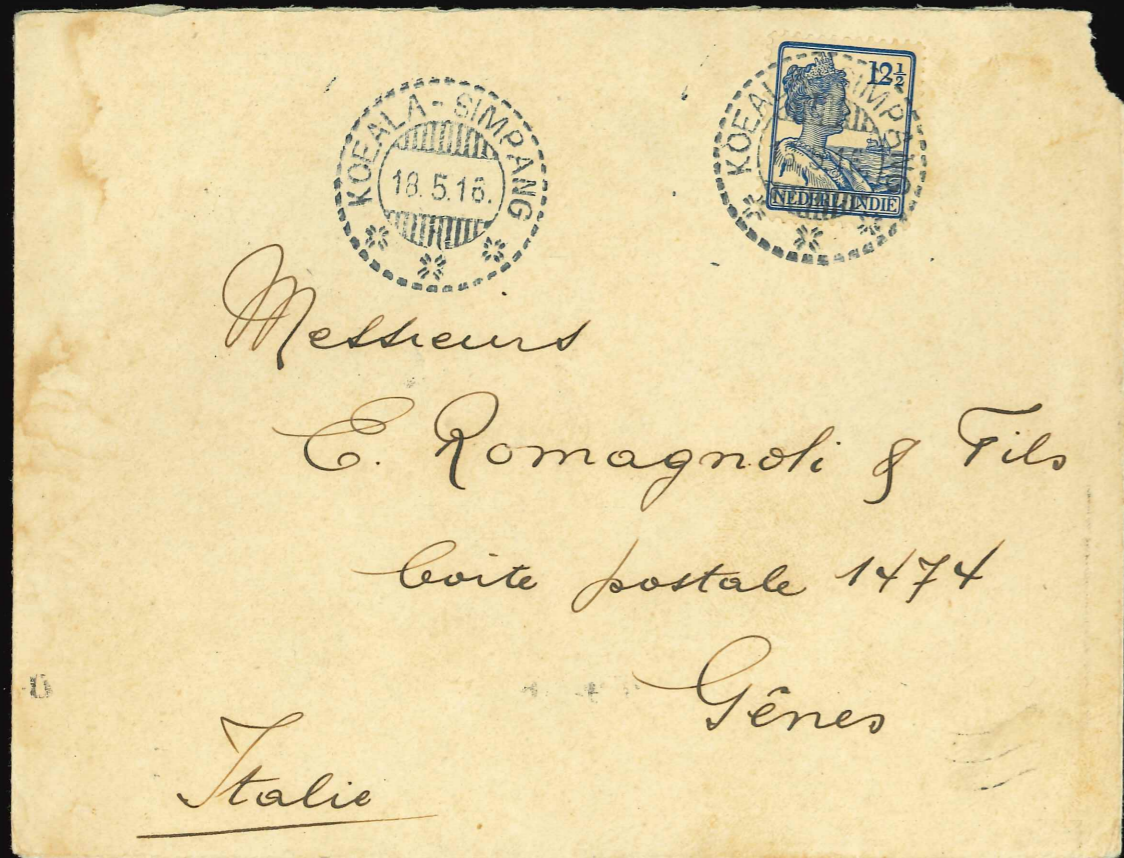 KOEALA-SIMPANG
18.5.16.
KOEALA-SIMPANG
12½
NEDERL-INDIE
Messieurs
E. Romagnoli & Fils
boite postale 1474
Gênes
Italie